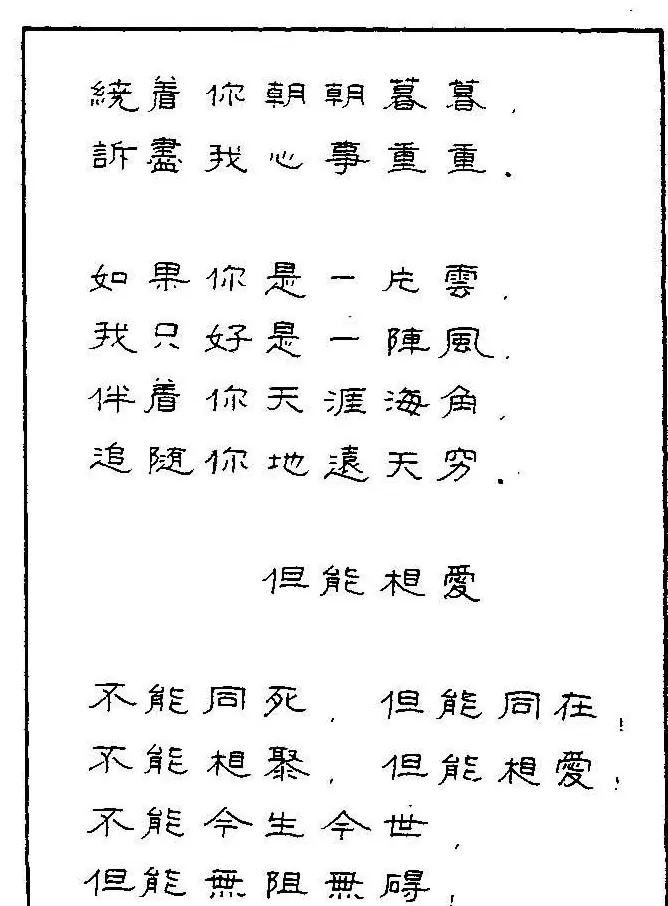 繞着你朝朝暮暮,
訴盡我心事重重.
如果你是一片雲,
我只好是一陣風,
伴着你天涯海角,
追隨你地遠天窮.
但能相愛
不能同死,但能同在!
不能相聚,但能相愛!
不能今生今世,
但能無阻無碍!